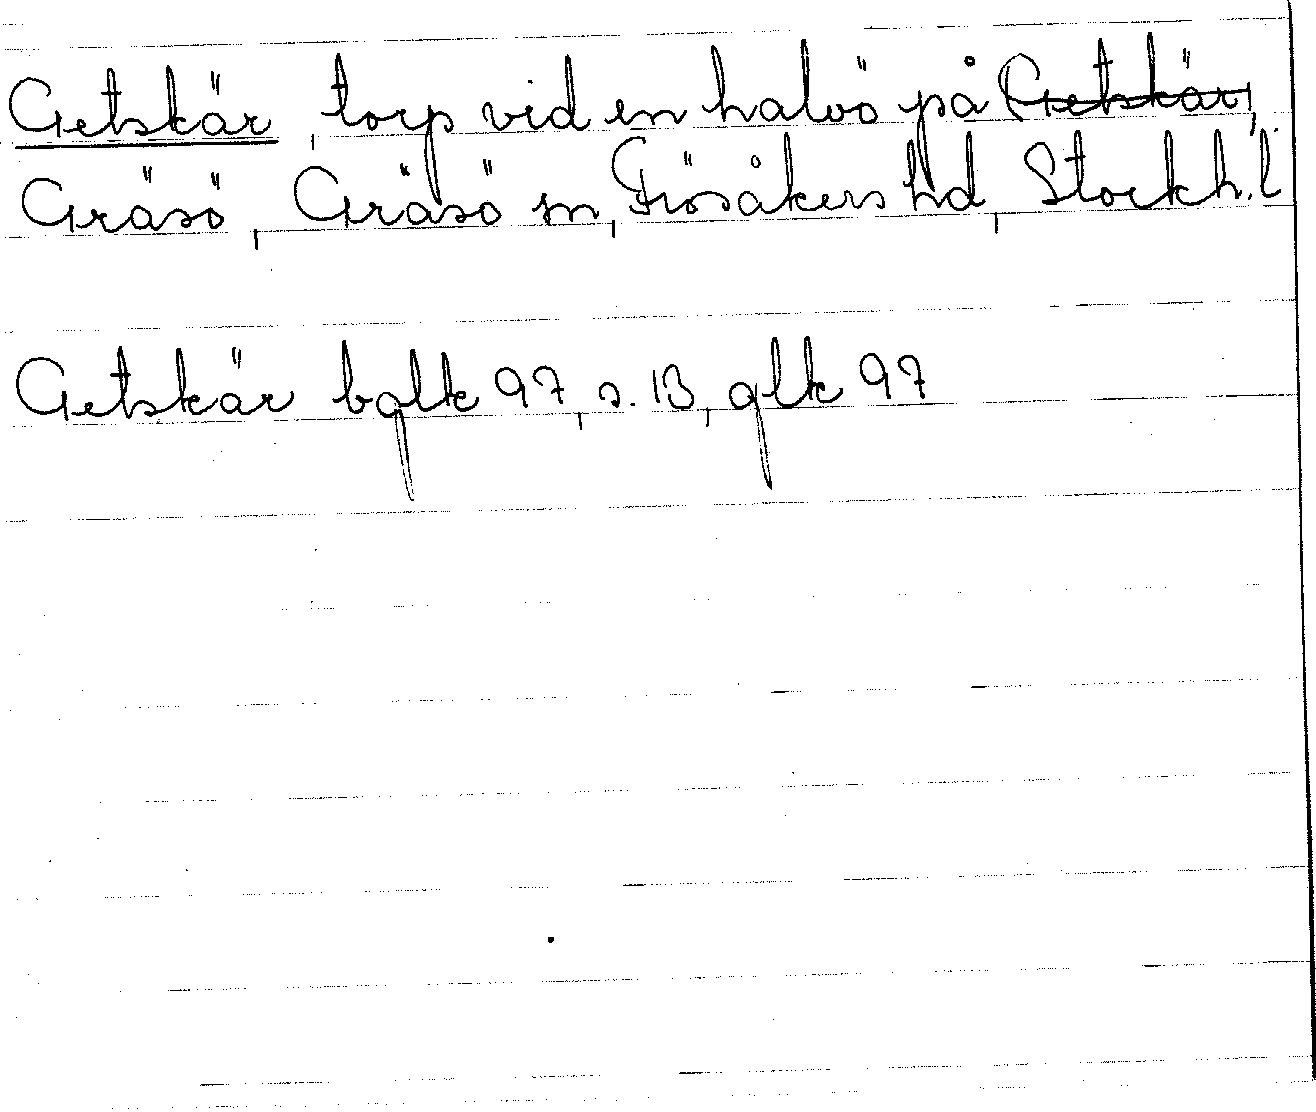 Getskär, torp vid en halvö på Getskär,
Gräsö, Gräsö sn, Frösåkers hd, Stockh. l
Getskär bglk 97, s. 13, glk 97